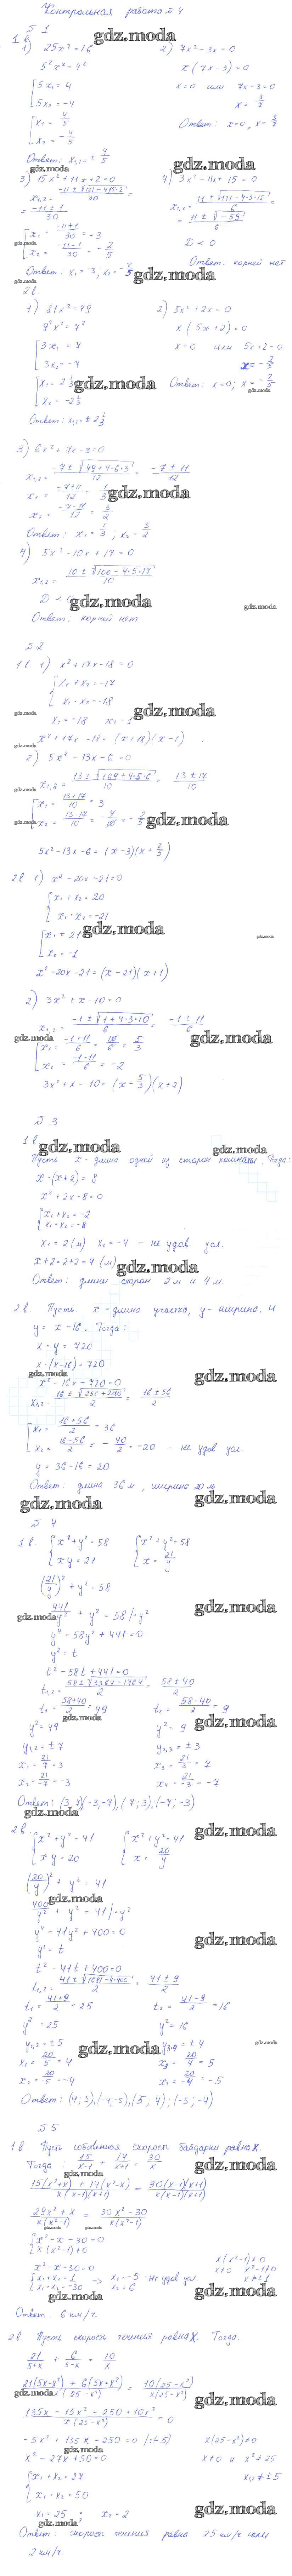 Контрольная работа №4
№1
1в
1) 25x² = 16
5²x² = 4²
[5x₁ = 4
5x₂ = -4
[x₁ = 4/5
x₂ = -4/5
Ответ: x₁,₂ = ± 4/5
2) 7x² - 3x = 0
x(7x - 3) = 0
x = 0 или 7x - 3 = 0
x = 3/7
Ответ: x = 0, x = 3/7
3) 15x² + 11x + 2 = 0
x₁,₂ = (-11 ± √(121 - 4·15·2))/30 =
= (-11 ± 1)/30
[x₁ = (-11+1)/30 = -3
x₂ = (-11-1)/30 = -2/5
Ответ: x₁ = -3, x₂ = -2/5
4) 3x² - 11x + 15 = 0
x₁,₂ = (11 ± √(121 - 4·3·15))/6 =
= (11 ± √-59)/6
D < 0
Ответ: корней нет
2в.
1) 81x² = 49
9²x² = 7²
[3x₁ = 7
3x₂ = -7
[x₁ = 2 1/3
x₂ = -2 1/3
Ответ: x₁,₂ = ± 2 1/3
2) 5x² + 2x = 0
x(5x + 2) = 0
x = 0 или 5x + 2 = 0
x = -2/5
Ответ: x = 0; x = -2/5
3) 6x² + 7x - 3 = 0
x₁,₂ = (-7 ± √(49 + 4·6·3))/12 = (-7 ± 11)/12
x₁ = (-7+11)/12 = 1/3
x₂ = (-7-11)/12 = 3/2
Ответ: x₁ = 1/3; x₂ = 3/2
4) 5x² - 10x + 17 = 0
x₁,₂ = (10 ± √(100 - 4·5·17))/10
D < 0
Ответ: корней нет
№2
1в 1) x² + 17x - 18 = 0
{x₁ + x₂ = -17
x₁ · x₂ = -18
x₁ = -18 x₂ = 1
x² + 17x - 18 = (x + 18)(x - 1)
2) 5x² - 13x - 6 = 0
x₁,₂ = (13 ± √(169 + 4·5·6))/10 = (13 ± 17)/10
[x₁ = (13+17)/10 = 3
x₂ = (13-17)/10 = -4/10 = -2/5
5x² - 13x - 6 = (x - 3)(x + 2/5)
2в 1) x² - 20x - 21 = 0
{x₁ + x₂ = 20
x₁ · x₂ = -21
[x₁ = 21
x₂ = -1
x² - 20x - 21 = (x - 21)(x + 1)
2) 3x² + x - 10 = 0
x₁,₂ = (-1 ± √(1 + 4·3·10))/6 = (-1 ± 11)/6
[x₁ = (-1+11)/6 = 10/6 = 5/3
x₂ = (-1-11)/6 = -2
3x² + x - 10 = (x - 5/3)(x + 2)
№3
1в
Пусть x - длина одной из сторон комнаты. Тогда:
x·(x+2) = 8
x² + 2x - 8 = 0
{x₁ + x₂ = -2
x₁ · x₂ = -8
x₁ = 2 (м) x₂ = -4 - не удов усл.
x + 2 = 2 + 2 = 4 (м)
Ответ: длины сторон 2м и 4м.
2в. Пусть x - длина участка, y - ширина. и
y = x - 16. Тогда:
x · y = 720
x·(x-16) = 720
x² - 16x - 720 = 0
x₁,₂ = (16 ± √(256 + 2880))/2 = (16 ± 56)/2
[x₁ = (16+56)/2 = 36
x₂ = (16-56)/2 = -40/2 = -20 - не удов усл.
y = 36 - 16 = 20
Ответ: длина 36 м, ширина 20 м
№4
1в. {x² + y² = 58
xy = 21
{x² + y² = 58
x = 21/y
(21/y)² + y² = 58
441/y² + y² = 58 |·y²
y⁴ - 58y² + 441 = 0
y² = t
t² - 58t + 441 = 0
t₁,₂ = (58 ± √(3364 - 1764))/2 = (58 ± 40)/2
t₁ = (58+40)/2 = 49 t₂ = (58-40)/2 = 9
y² = 49 y² = 9
y₁,₂ = ±7 y₃,₄ = ±3
x₁ = 21/7 = 3 x₃ = 21/3 = 7
x₂ = 21/-7 = -3 x₄ = 21/-3 = -7
Ответ: (3,7)(-3,-7), (7;3), (-7;-3)
2в {x² + y² = 41
xy = 20
{x² + y² = 41
x = 20/y
(20/y)² + y² = 41
400/y² + y² = 41 |·y²
y⁴ - 41y² + 400 = 0
y² = t
t² - 41t + 400 = 0
t₁,₂ = (41 ± √(1681 - 4·400))/2 = (41 ± 9)/2
t₁ = (41+9)/2 = 25 t₂ = (41-9)/2 = 16
y² = 25 y² = 16
y₁,₂ = ±5 y₃,₄ = ±4
x₁ = 20/5 = 4 x₃ = 20/4 = 5
x₂ = 20/-5 = -4 x₄ = 20/-4 = -5
Ответ: (4;5), (-4;-5), (5;4); (-5;-4)
№5
1в. Пусть собственная скорость байдарки равна x.
Тогда: 15/(x-1) + 14/(x+1) = 30/x
(15(x²+x) + 14(x²-x))/(x(x-1)(x+1)) = 30(x-1)(x+1)/(x(x-1)(x+1))
(29x² + x)/(x(x²-1)) = (30x² - 30)/(x(x²-1))
{x² - x - 30 = 0
x(x²-1) ≠ 0
x² - x - 30 = 0
{x₁ + x₂ = 1
x₁ · x₂ = -30
=> x₁ = -5 - не удов усл
x₂ = 6
x(x²-1) ≠ 0
x ≠ 0 x² - 1 ≠ 0
x ≠ ±1
Ответ. 6 км/ч.
2в Пусть скорость течения равна x. Тогда.
21/(5+x) + 6/(5-x) = 10/x
(21(5x-x²) + 6(5x+x²))/(x(25-x²)) = 10(25-x²)/(x(25-x²))
(135x - 15x² - 250 + 10x²)/(x(25-x²)) = 0
-5x² + 135x - 250 = 0 |:(-5)
x² - 27x + 50 = 0
{x₁ + x₂ = 27
x₁ · x₂ = 50
x(25-x²) ≠ 0
x ≠ 0 и x² ≠ 25
x₁,₂ ≠ ±5
x₁ = 25 x₂ = 2
Ответ: скорость течения равна 25 км/ч или
2 км/ч.
gdz.moda